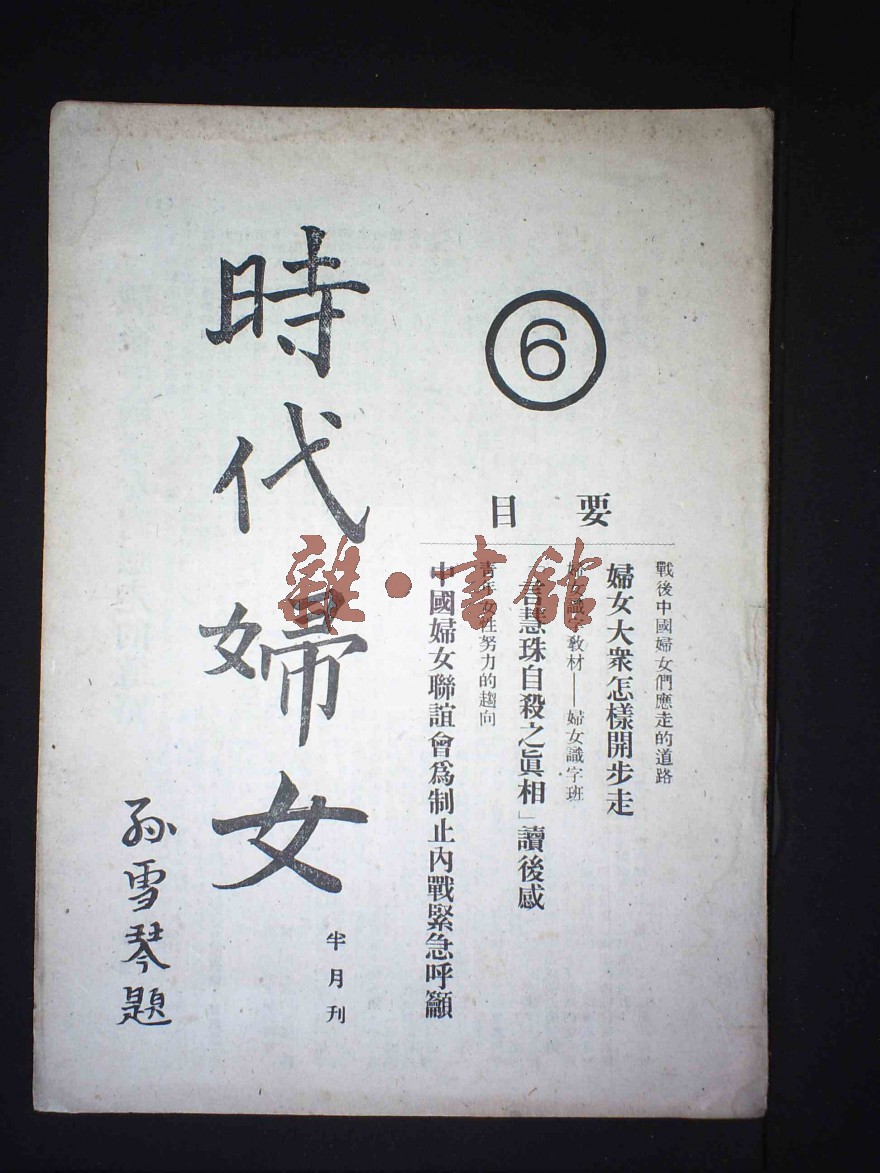 ⑥
要目
戰後中國婦女們應走的道路
婦女大衆怎樣開步走
婦女識字教材——婦女識字班
「言慧珠自殺之眞相」讀後感
青年女性努力的趨向
中國婦女聯誼會爲制止內戰緊急呼籲
時代婦女
半月刊
孫雪琴題
雜·書館